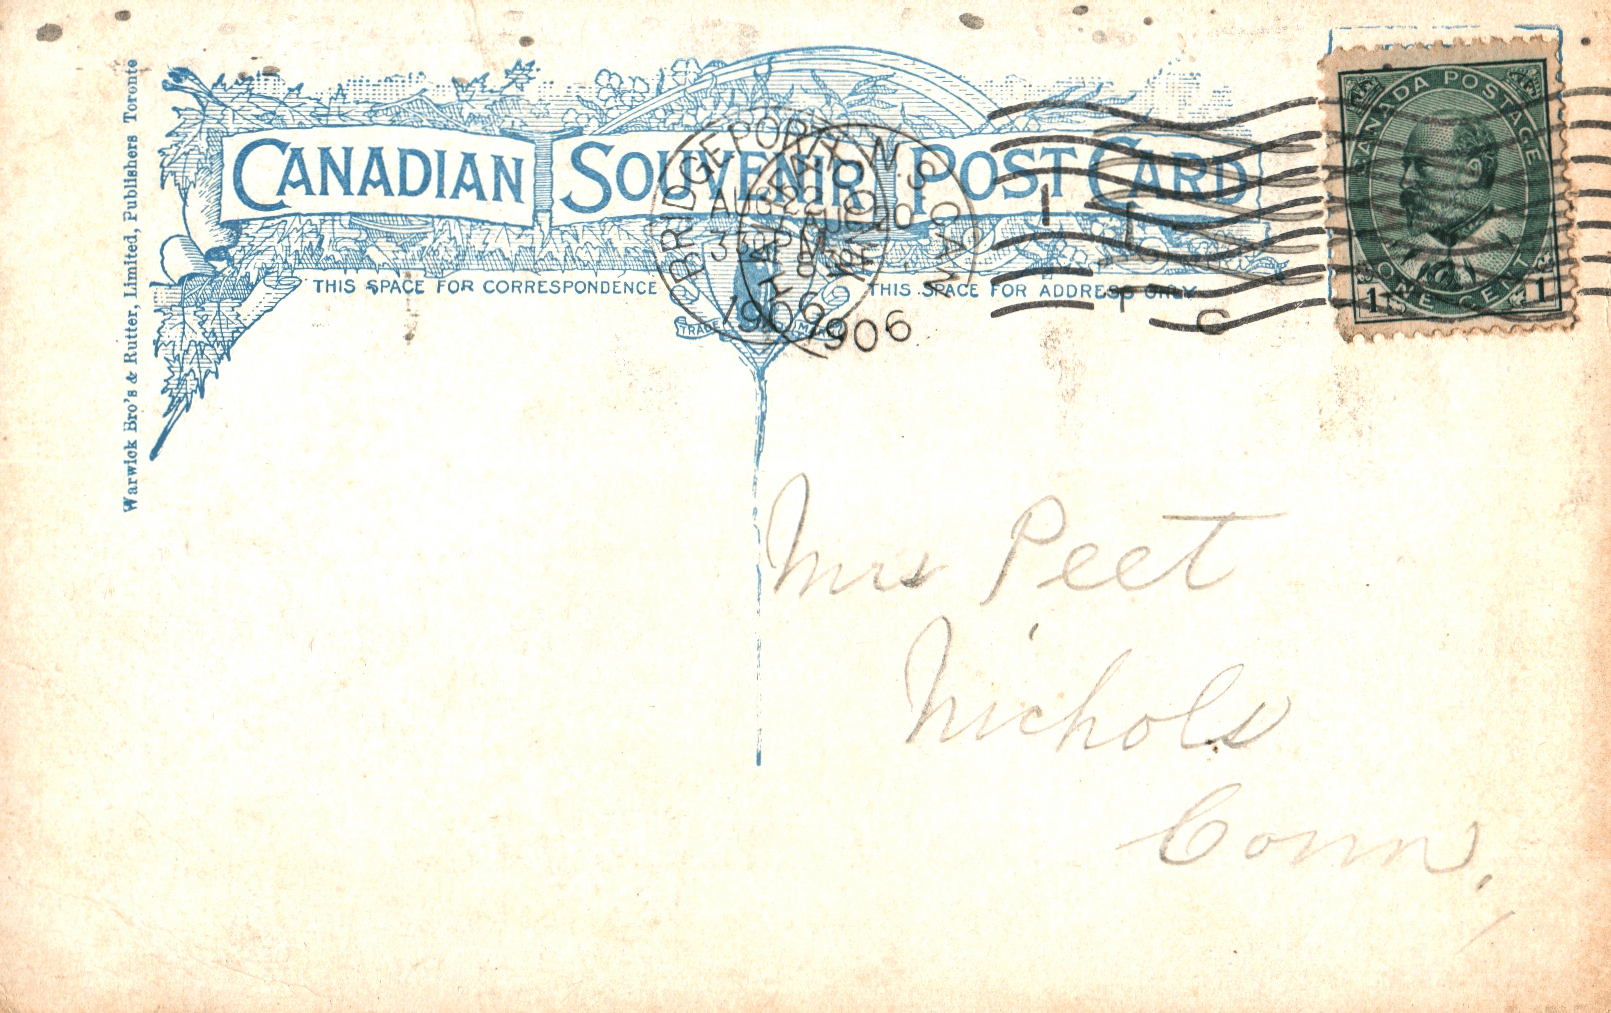 Warwick Bro's & Rutter, Limited, Publishers Toronto
CANADIAN SOUVENIR POST CARD
THIS SPACE FOR CORRESPONDENCE
THIS SPACE FOR ADDRESS ONLY
TRADE
BRIDGEPORT
AUG 22
1906
HALIFAX
CANADA
AUG 20
1906
CANADA POSTAGE
1 ONE CENT 1
Mrs Peet
Nichols
Conn.